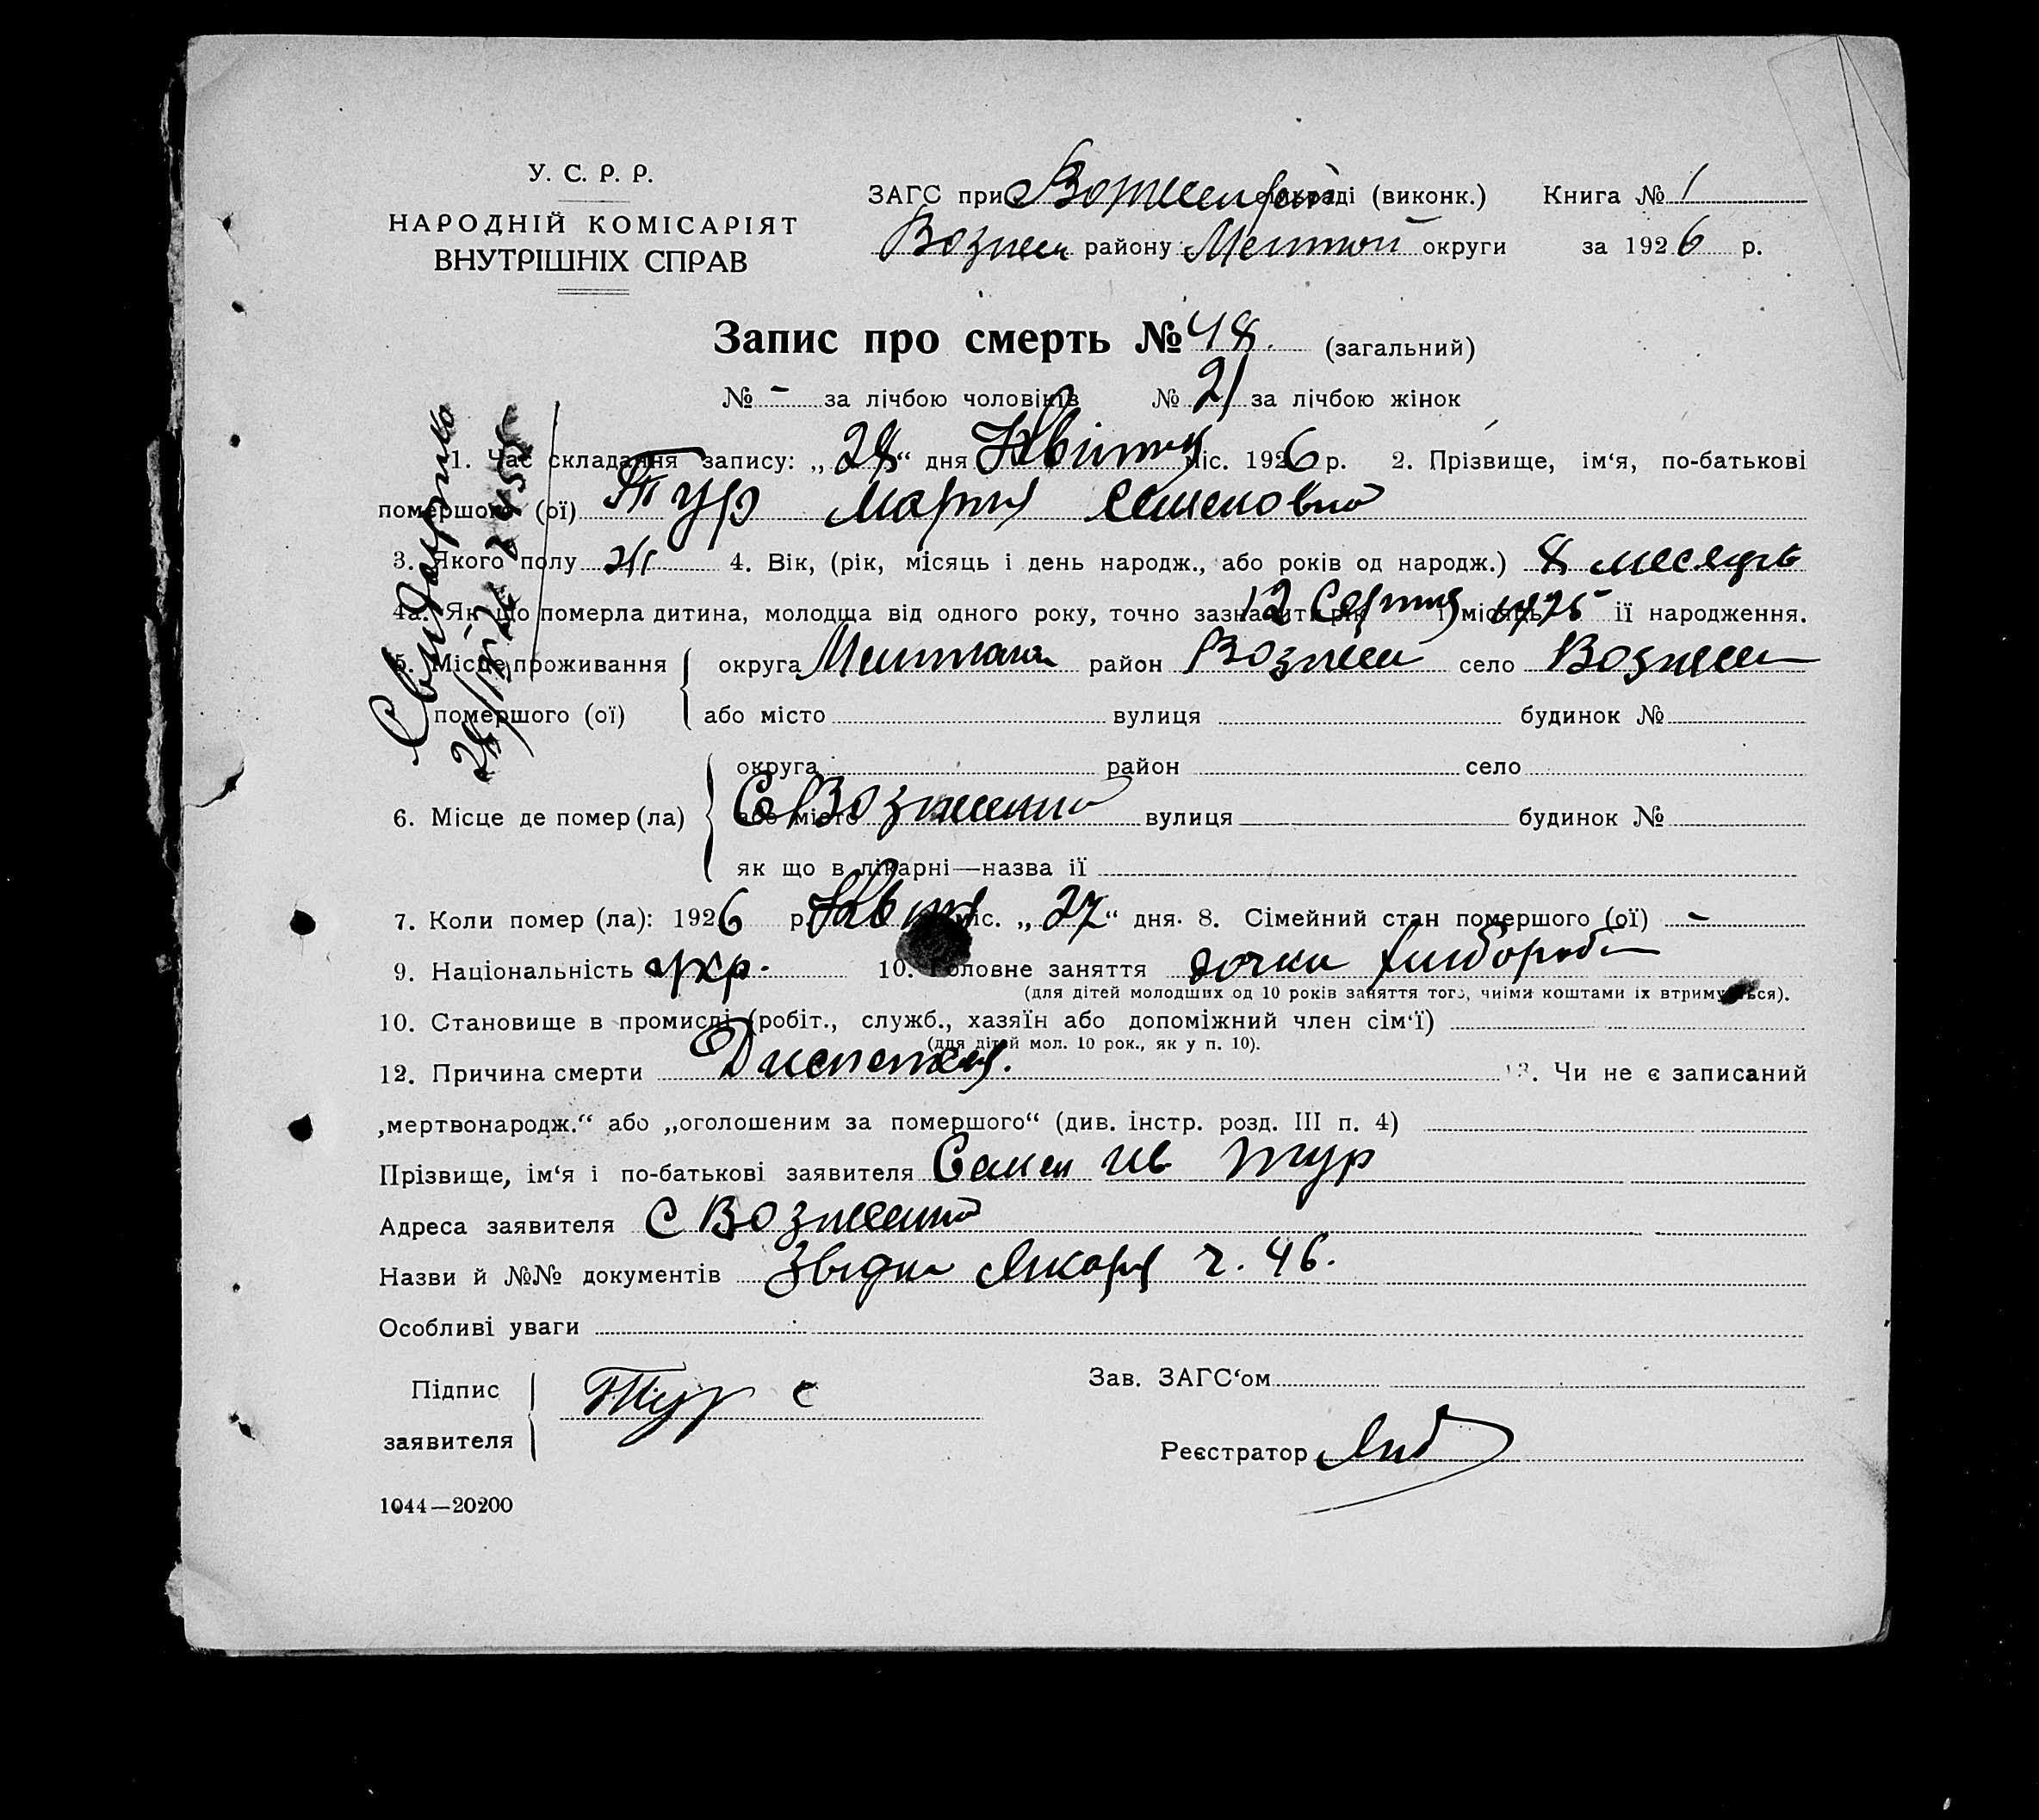 У. С. Р. Р.
НАРОДНІЙ КОМІСАРІЯТ
ВНУТРІШНІХ СПРАВ
ЗАГС при сільраді (виконк.) Книга № 1
Вознесен району округи за 1926 р.
Запис про смерть № 48. (загальний)
№ - за лічбою чоловіків № 21 за лічбою жінок
1. Час складання запису: „28“ дня Квітня міс. 1926 р. 2. Прізвище, ім‘я, по-батькові
помершого (ої) Тур Мария Семеновна
3. Якого полу ж 4. Вік, (рік, місяць і день народж., або років од народж.) 8 месяцев
4а. Як що померла дитина, молодща від одного року, точно зазначити рік і місяць 12 Серпня 1925 ії народження.
5. Місце проживання округа район Вознесен село Вознесен
помершого (ої) або місто вулиця будинок №
округа район село
6. Місце де помер (ла) або місто С Вознесенка вулиця будинок №
як що в лікарні—назва ії
7. Коли помер (ла): 1926 р. Квітня міс. „27“ дня. 8. Сімейний стан помершого (ої) -
9. Національність укр. 10. Головне заняття дочка хлібороба
(для дітей молодших од 10 років заняття того, чиїми коштами іх втримується).
10. Становище в промислі (робіт., служб., хазяїн або допоміжний член сім‘ї)
(для дітей мол. 10 рок., як у п. 10).
12. Причина смерти 13. Чи не є записаний
„мертвонародж.“ або „оголошеним за помершого“ (див. інстр. розд. III п. 4)
Прізвище, ім‘я і по-батькові заявителя Семен Ив Тур
Адреса заявителя С Вознесенка
Назви й №№ документів Звідка Лікаря ч. 46.
Особливі уваги
Підпис
заявителя Тур С
Зав. ЗАГС‘ом
Реєстратор
1044—20200